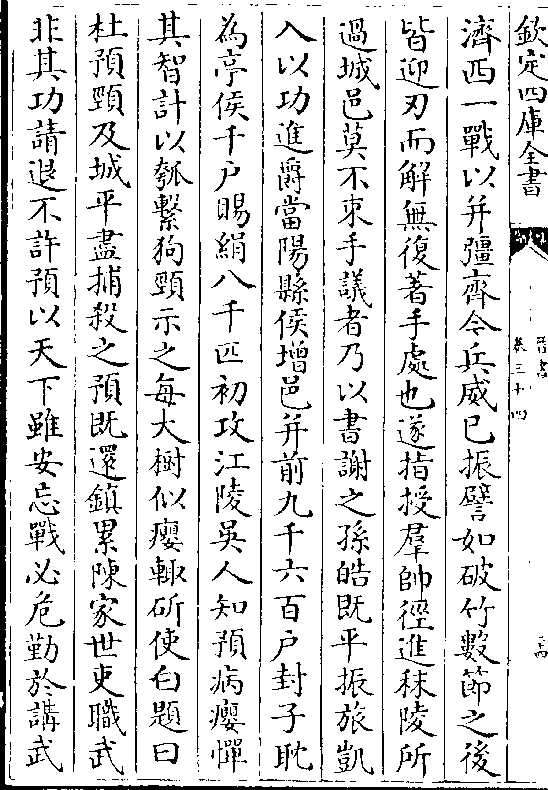 欽定四庫全書
晉書
卷三十四
二十四
濟西一戰以并彊齊今兵威已振譬如破竹數節之後
皆迎刃而解無復著手處也遂指授羣帥徑進秣陵所
過城邑莫不束手議者乃以書謝之孫皓既平振旅凱
入以功進爵當陽縣侯增邑并前九千六百户封子耽
為亭侯千户賜絹八千匹初攻江陵吳人知預病癭憚
其智計以瓠繫狗頸示之每大樹似癭輒斫使白題曰
杜預頸及城平盡捕殺之預既還鎮累陳家世吏職武
非其功請退不許預以天下雖安忘戰必危勤於講武